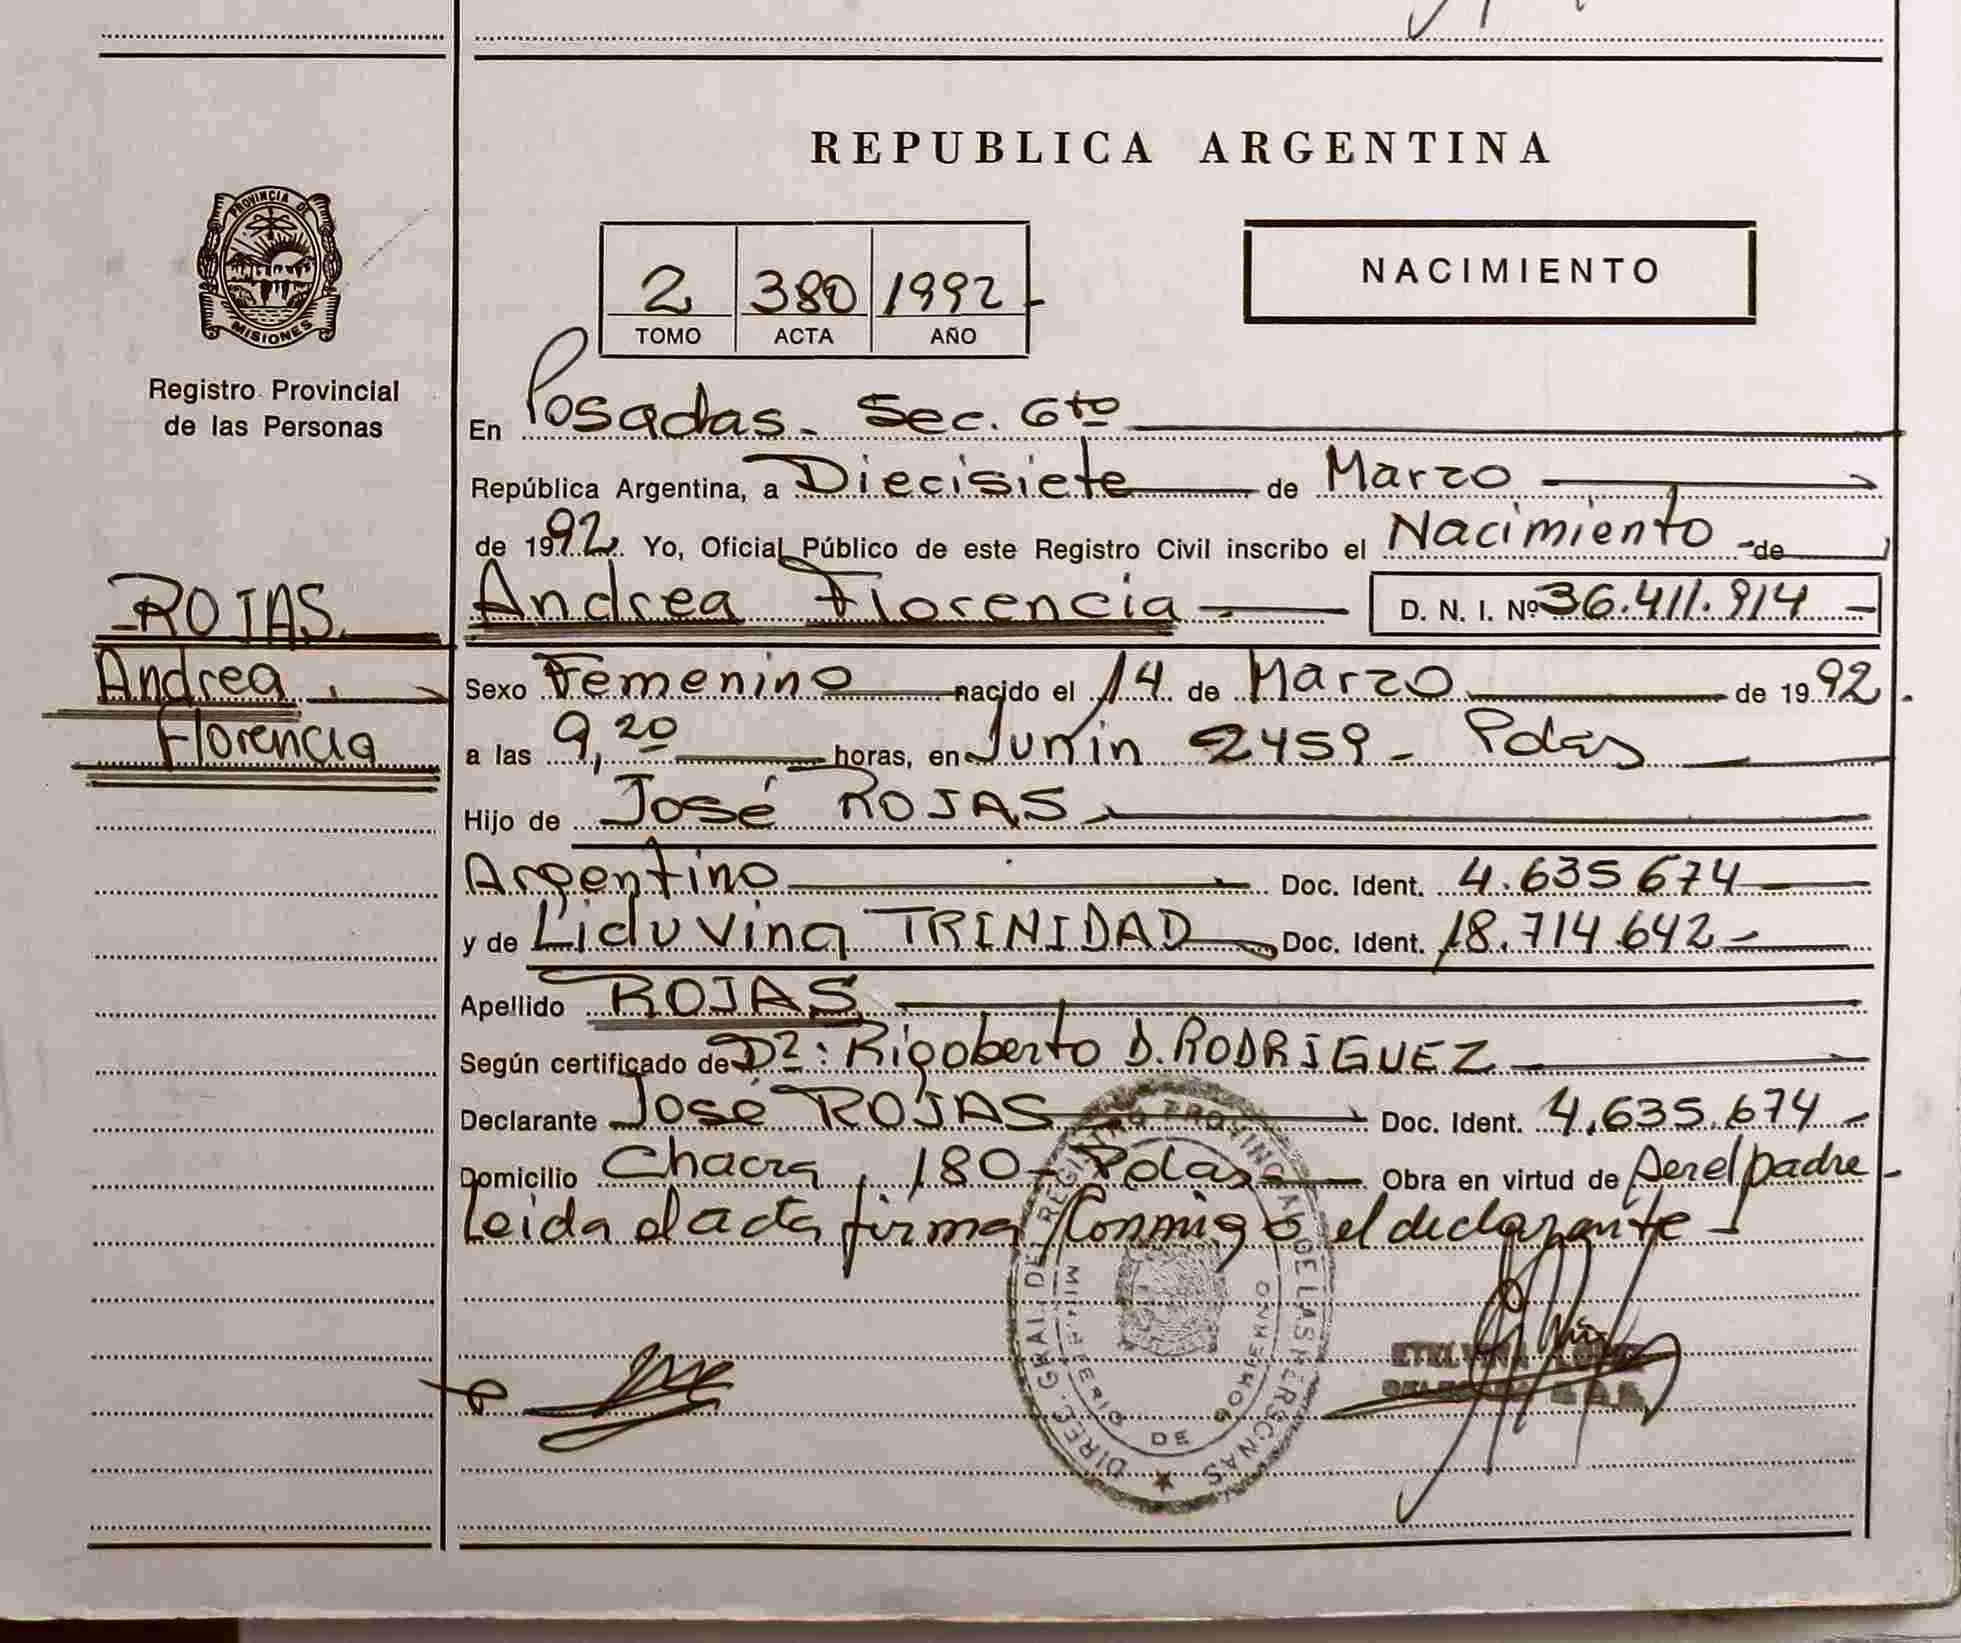 REPUBLICA ARGENTINA
PROVINCIA DE
MISIONES
Registro Provincial
de las Personas
2 380 1992
TOMO ACTA AÑO
NACIMIENTO
En Posadas - Sec. 6to
República Argentina, a Diecisiete de Marzo
de 1992 Yo, Oficial Público de este Registro Civil inscribo el Nacimiento de
ROJAS
Andrea Florencia D. N. I. Nº 36.411.914
Andrea
Florencia
Sexo Femenino nacido el 14 de Marzo de 1992.
a las 9,20 horas, en Junín 2459 - Pdas
Hijo de José ROJAS
Argentino Doc. Ident. 4.635.674
y de Liduvina TRINIDAD Doc. Ident. 18.714.642
Apellido ROJAS
Según certificado de Dº: Rigoberto D. RODRIGUEZ
Declarante José ROJAS Doc. Ident. 4.635.674
Domicilio Chacra 180 - Pdas Obra en virtud de ser el padre
Leida el acta firma conmigo el declarante
DIREE. GRAL DE REGISTRO PROVINCIAL DE LAS PERSONAS
MINISTERIO DE GOBIERNO
ETELVINA